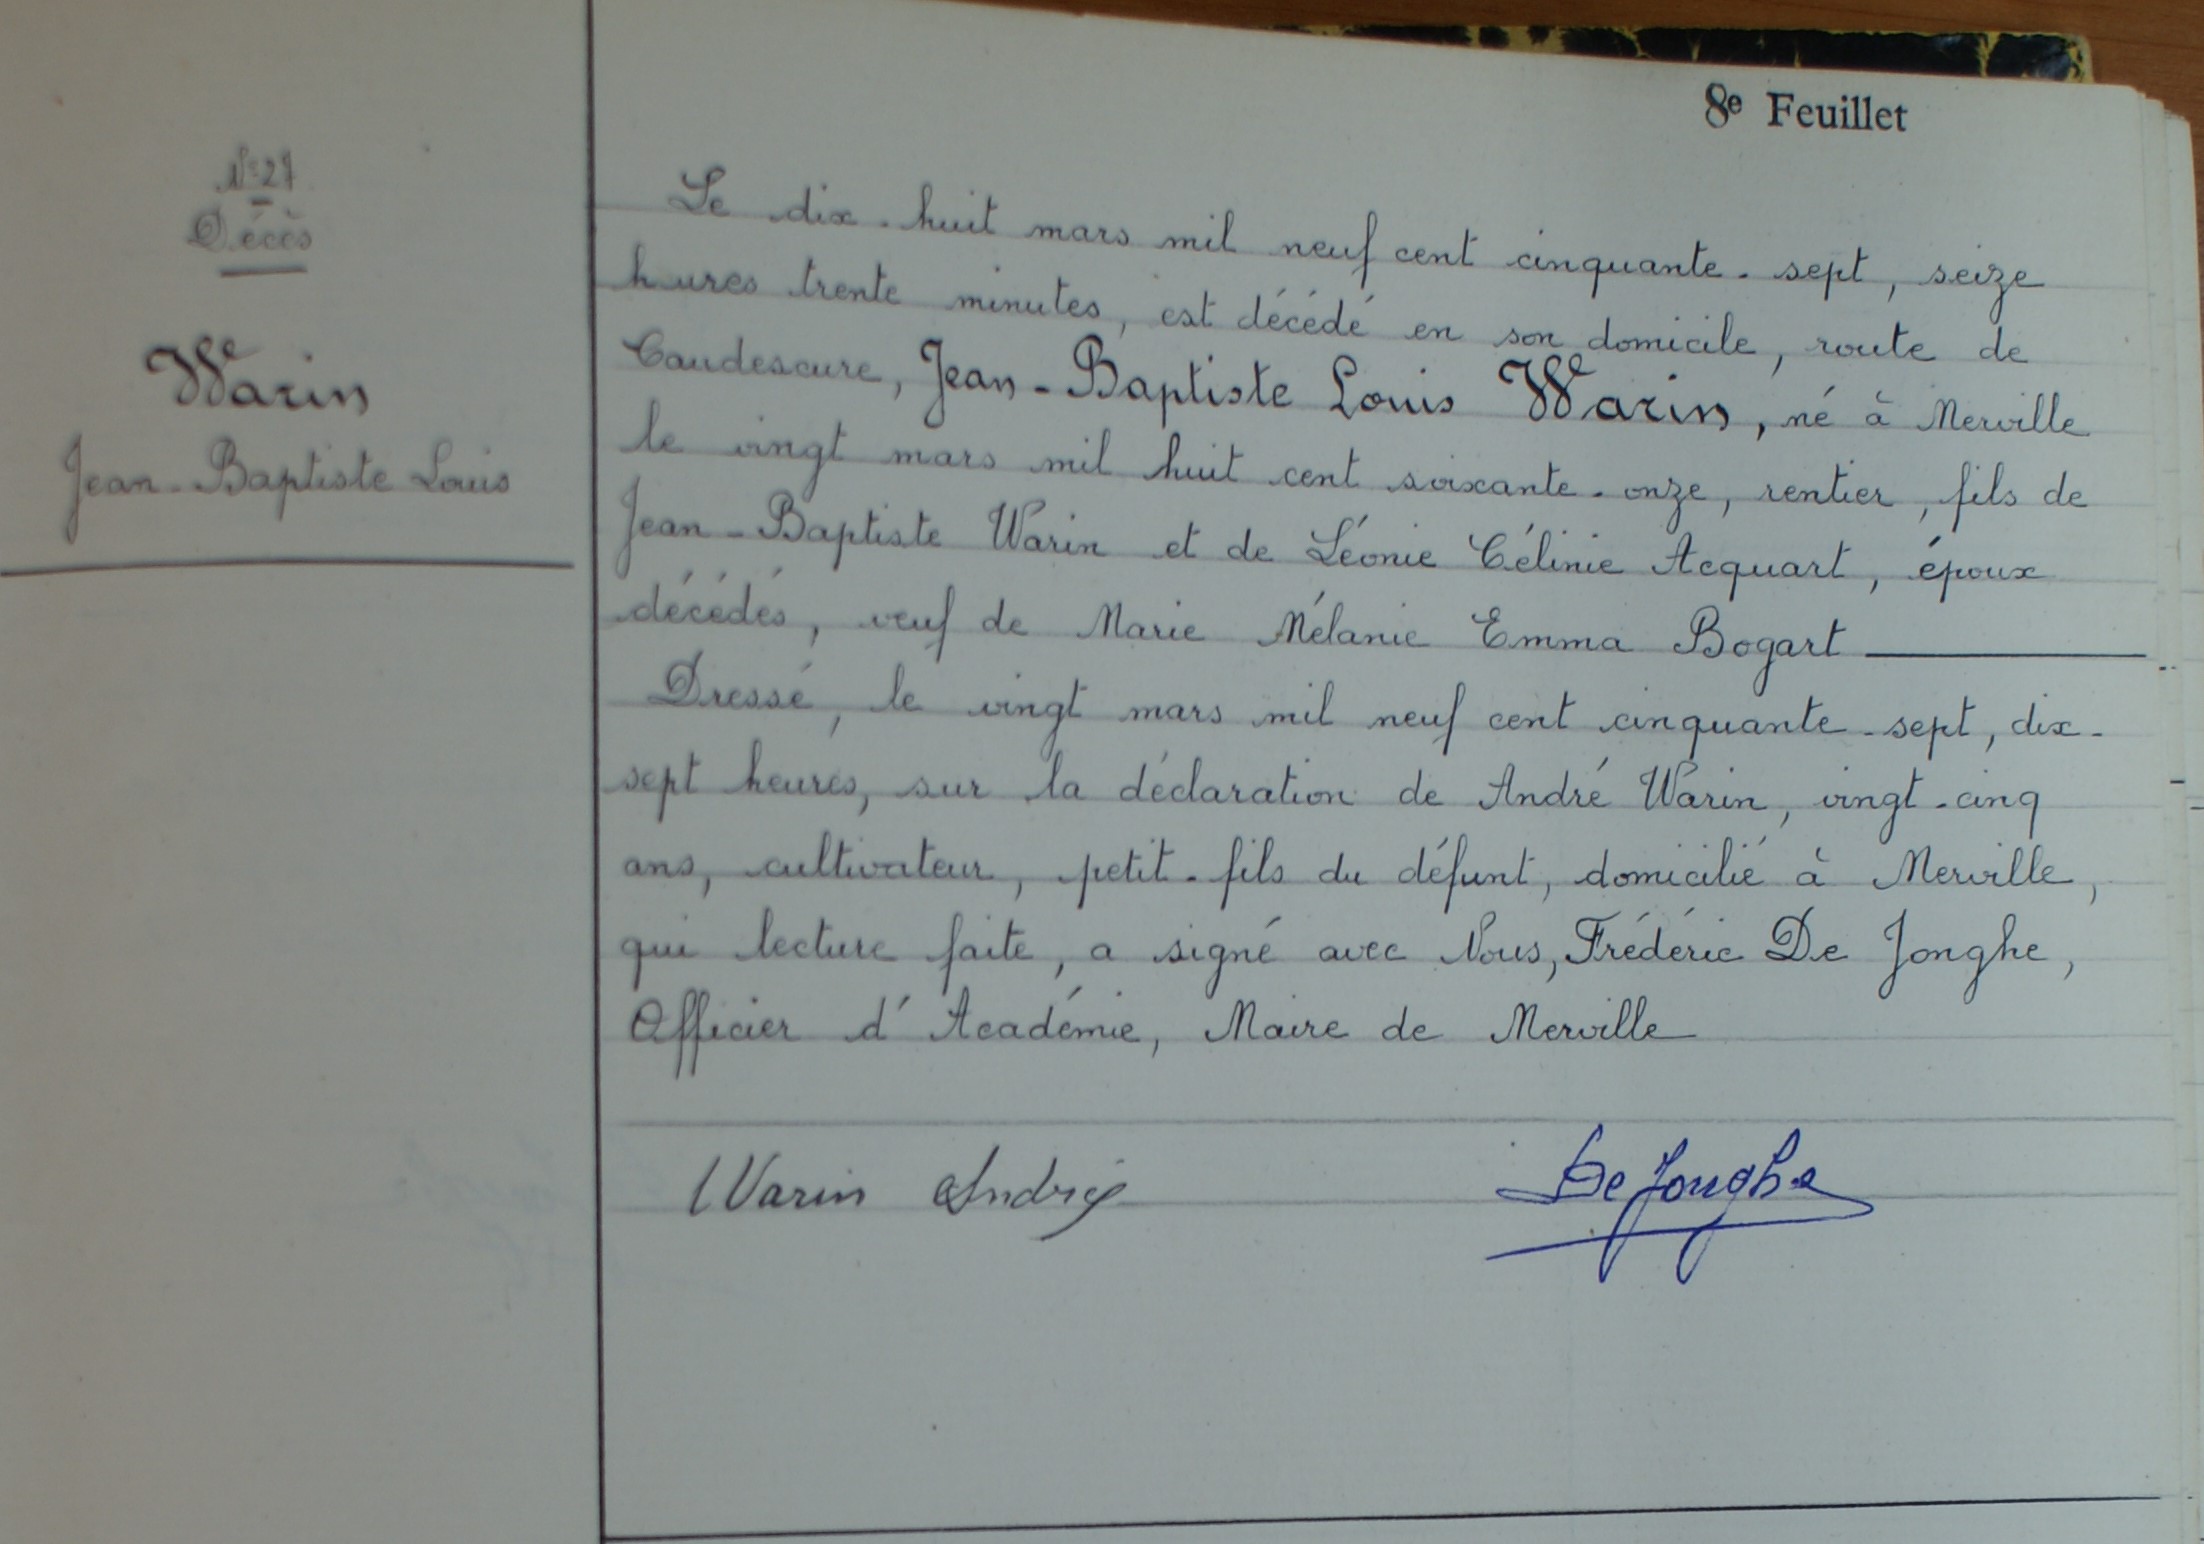 8e Feuillet
N° 27
Décès
Warin
Jean-Baptiste Louis
Le dix-huit mars mil neuf cent cinquante-sept, seize
heures trente minutes, est décédé en son domicile, route de
Caudescure, Jean-Baptiste Louis Warin, né à Merville
le vingt mars mil huit cent soixante-onze, rentier, fils de
Jean-Baptiste Warin et de Léonie Célinie Acquart, époux
décédés, veuf de Marie Mélanie Emma Bogart
Dressé, le vingt mars mil neuf cent cinquante-sept, dix-
sept heures, sur la déclaration de André Warin, vingt-cinq
ans, cultivateur, petit-fils du défunt, domicilié à Merville,
qui lecture faite, a signé avec Nous, Frédéric De Jonghe,
Officier d'Académie, Maire de Merville
Warin André
De Jonghe